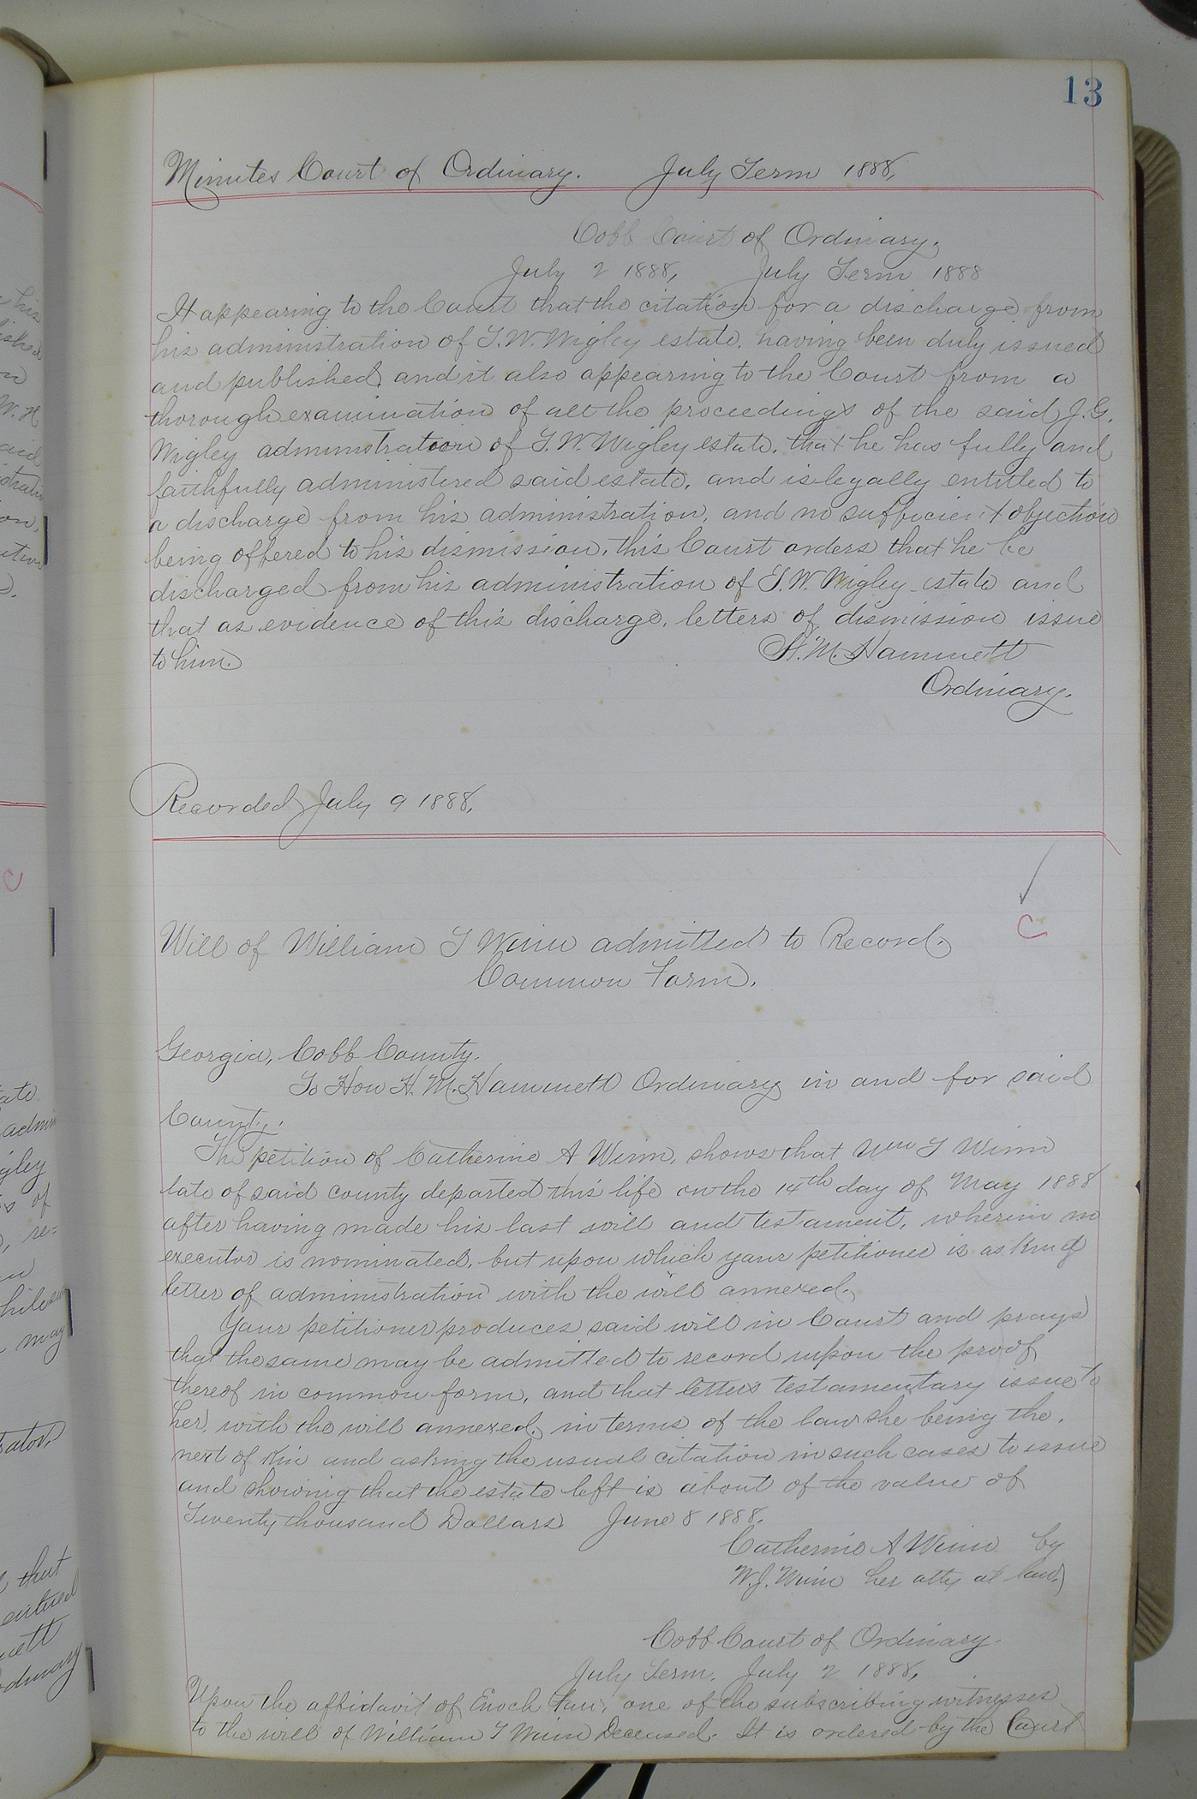 13
Minutes Court of Ordinary. July Term 1888,
Cobb Court of Ordinary,
July 2 1888, July Term 1888
It appearing to the Court that the citation for a discharge from
his administration of T. W. Wigley estate, having been duly issued
and published, and it also appearing to the Court from a
thorough examination of all the proceedings of the said J. G.
Wigley administration of T. W. Wigley estate, that he has fully and
faithfully administired said estate, and is legally entitled to
a discharge from his administration, and no sufficient objection
being offered to his dismission, this Court orders that he be
discharged from his administration of T. W. Wigley estate and
that as evidence of this discharge, letters of dismission issue
to him. H. M. Hammett
Ordinary.
Recorded July 9 1888,
C
Will of William T Winn admitted to Record
Common Form.
Georgia, Cobb County.
To Hon H. M. Hammett Ordinary in and for said
County.
The petition of Catherine A Winn, shows that Wm T Winn
late of said county departed this life on the 14th day of May 1888
after having made his last will and testament, wherein no
executor is nominated, but upon which your petitioner is asking
letter of administration with the will annexed.
Your petitioner produces said will in Court and prays
that the same may be admitted to record upon the proof
thereof in common form, and that letters testamentary issue to
her, with the will annexed, in terms of the law she being the,
next of kin and asking the usual citation in such cases to issue
and showing that the estate left is about of the value of
Twenty thousand Dollars June 8 1888.
Catherine A Winn by
W. J. Winn her atty at law
Cobb Court of Ordinary.
July Term, July 2 1888,
Upon the affidavit of Enoch Faw, one of the subscribing witnesses
to the will of William T Winn Deceased. It is ordered by the Court